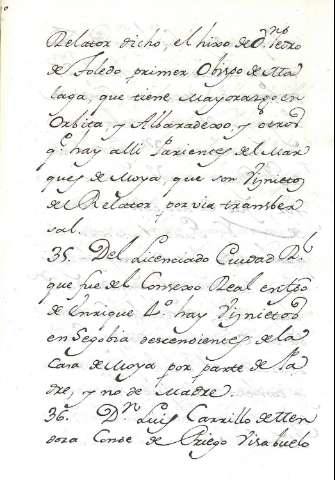 Relator dicho, el hixo de D.ⁿ Pedro
de Toledo primer Obispo de Ma
laga, que tiene Mayorazgo en
Orbita, y Albaradexo, y otros
q.ᵉ hay alli Parientes del Mar
ques de Moya, que son Viznietos
del Relator, por via transber
sal.
35. Del Licenciado Ciudad R.ˡ
que fue del Consexo Real en tpo
de Enrique 4.º hay Viznietos
en Segobia descendientes de la
Casa de Moya por parte de Pa
dre, y no de Madre.
36. D.ⁿ Luis Carrillo de Men
doza Conde de Priego Visabuelo